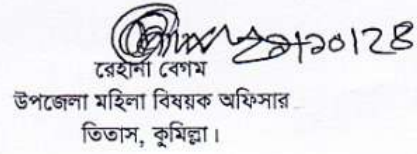 ২৯/১০/২৪
রেহানা বেগম
উপজেলা মহিলা বিষয়ক অফিসার
তিতাস, কুমিল্লা।